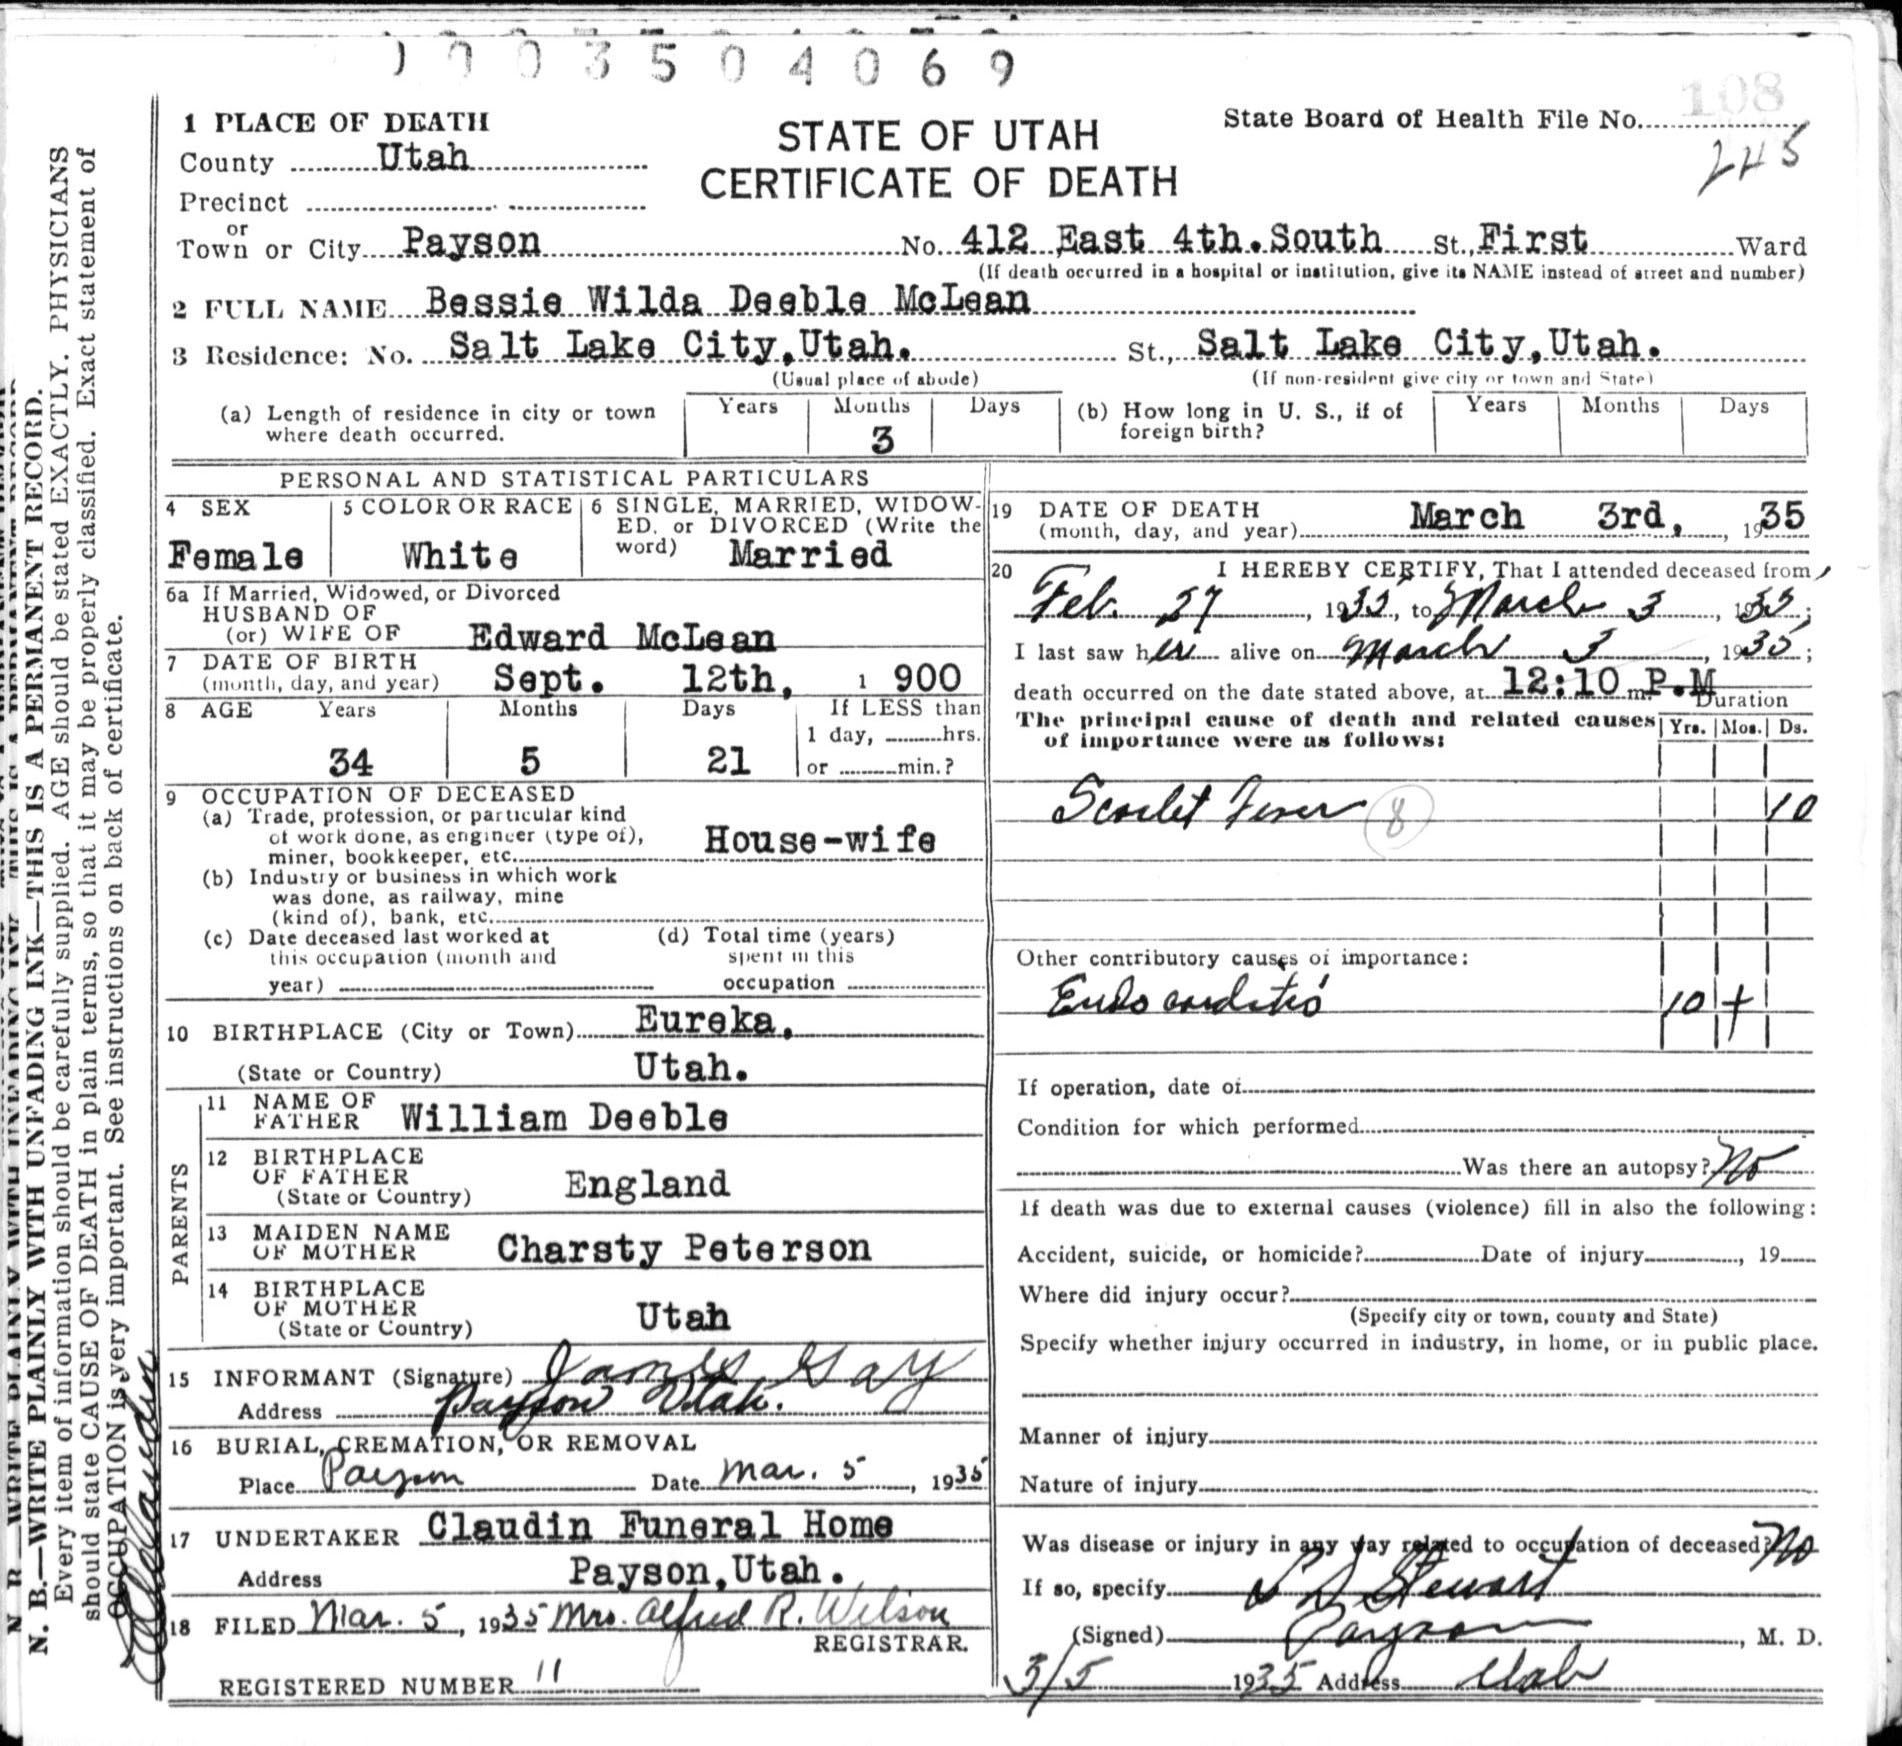 0003504069
108
1 PLACE OF DEATH
STATE OF UTAH
CERTIFICATE OF DEATH
State Board of Health File No.
245
County Utah
Precinct
or
Town or City Payson No. 412 East 4th. South St., First Ward
(If death occurred in a hospital or institution, give its NAME instead of street and number)
2 FULL NAME Bessie Wilda Deeble McLean
3 Residence: No. Salt Lake City, Utah. St., Salt Lake City, Utah.
(Usual place of abode) (If non-resident give city or town and State)
(a) Length of residence in city or town where death occurred. Years Months 3 Days
(b) How long in U. S., if of foreign birth? Years Months Days
PERSONAL AND STATISTICAL PARTICULARS
4 SEX Female
5 COLOR OR RACE White
6 SINGLE, MARRIED, WIDOW-
ED, or DIVORCED (Write the
word) Married
6a If Married, Widowed, or Divorced
HUSBAND OF
(or) WIFE OF Edward McLean
7 DATE OF BIRTH
(month, day, and year) Sept. 12th, 1 900
8 AGE Years Months Days If LESS than
1 day, hrs.
34 5 21 or min.?
9 OCCUPATION OF DECEASED
(a) Trade, profession, or particular kind
of work done, as engineer (type of),
miner, bookkeeper, etc. House-wife
(b) Industry or business in which work
was done, as railway, mine
(kind of), bank, etc.
(c) Date deceased last worked at
this occupation (month and
year)
(d) Total time (years)
spent in this
occupation
10 BIRTHPLACE (City or Town) Eureka,
(State or Country) Utah.
PARENTS
11 NAME OF
FATHER William Deeble
12 BIRTHPLACE
OF FATHER
(State or Country) England
13 MAIDEN NAME
OF MOTHER Charsty Peterson
14 BIRTHPLACE
OF MOTHER
(State or Country) Utah
15 INFORMANT (Signature) James Gay
Address Payson Utah.
16 BURIAL, CREMATION, OR REMOVAL
Place Payson Date Mar. 5, 1935
17 UNDERTAKER Claudin Funeral Home
Address Payson, Utah.
18 FILED Mar. 5, 1935 Mrs. Alfred R. Wilson
REGISTRAR.
REGISTERED NUMBER 11
19 DATE OF DEATH
(month, day, and year) March 3rd, , 1935
20 I HEREBY CERTIFY, That I attended deceased from
Feb. 27, 1935, to March 3, 1935;
I last saw her alive on March 3, 1935;
death occurred on the date stated above, at 12:10 m. P.M
Duration
The principal cause of death and related causes
of importance were as follows:
Yrs. Mos. Ds.
Scarlet Fever 8 10
Other contributory causes of importance:
Endocarditis 10 +
If operation, date of
Condition for which performed
Was there an autopsy? No
If death was due to external causes (violence) fill in also the following:
Accident, suicide, or homicide? Date of injury , 19
Where did injury occur?
(Specify city or town, county and State)
Specify whether injury occurred in industry, in home, or in public place.
Manner of injury
Nature of injury
Was disease or injury in any way related to occupation of deceased? No
If so, specify
Stewart
(Signed) Payson , M. D.
3/5 1935 Address Utah
N. B.—WRITE PLAINLY WITH UNFADING INK—THIS IS A PERMANENT RECORD.
Every item of information should be carefully supplied. AGE should be stated EXACTLY. PHYSICIANS
should state CAUSE OF DEATH in plain terms, so that it may be properly classified. Exact statement of
OCCUPATION is very important. See instructions on back of certificate.